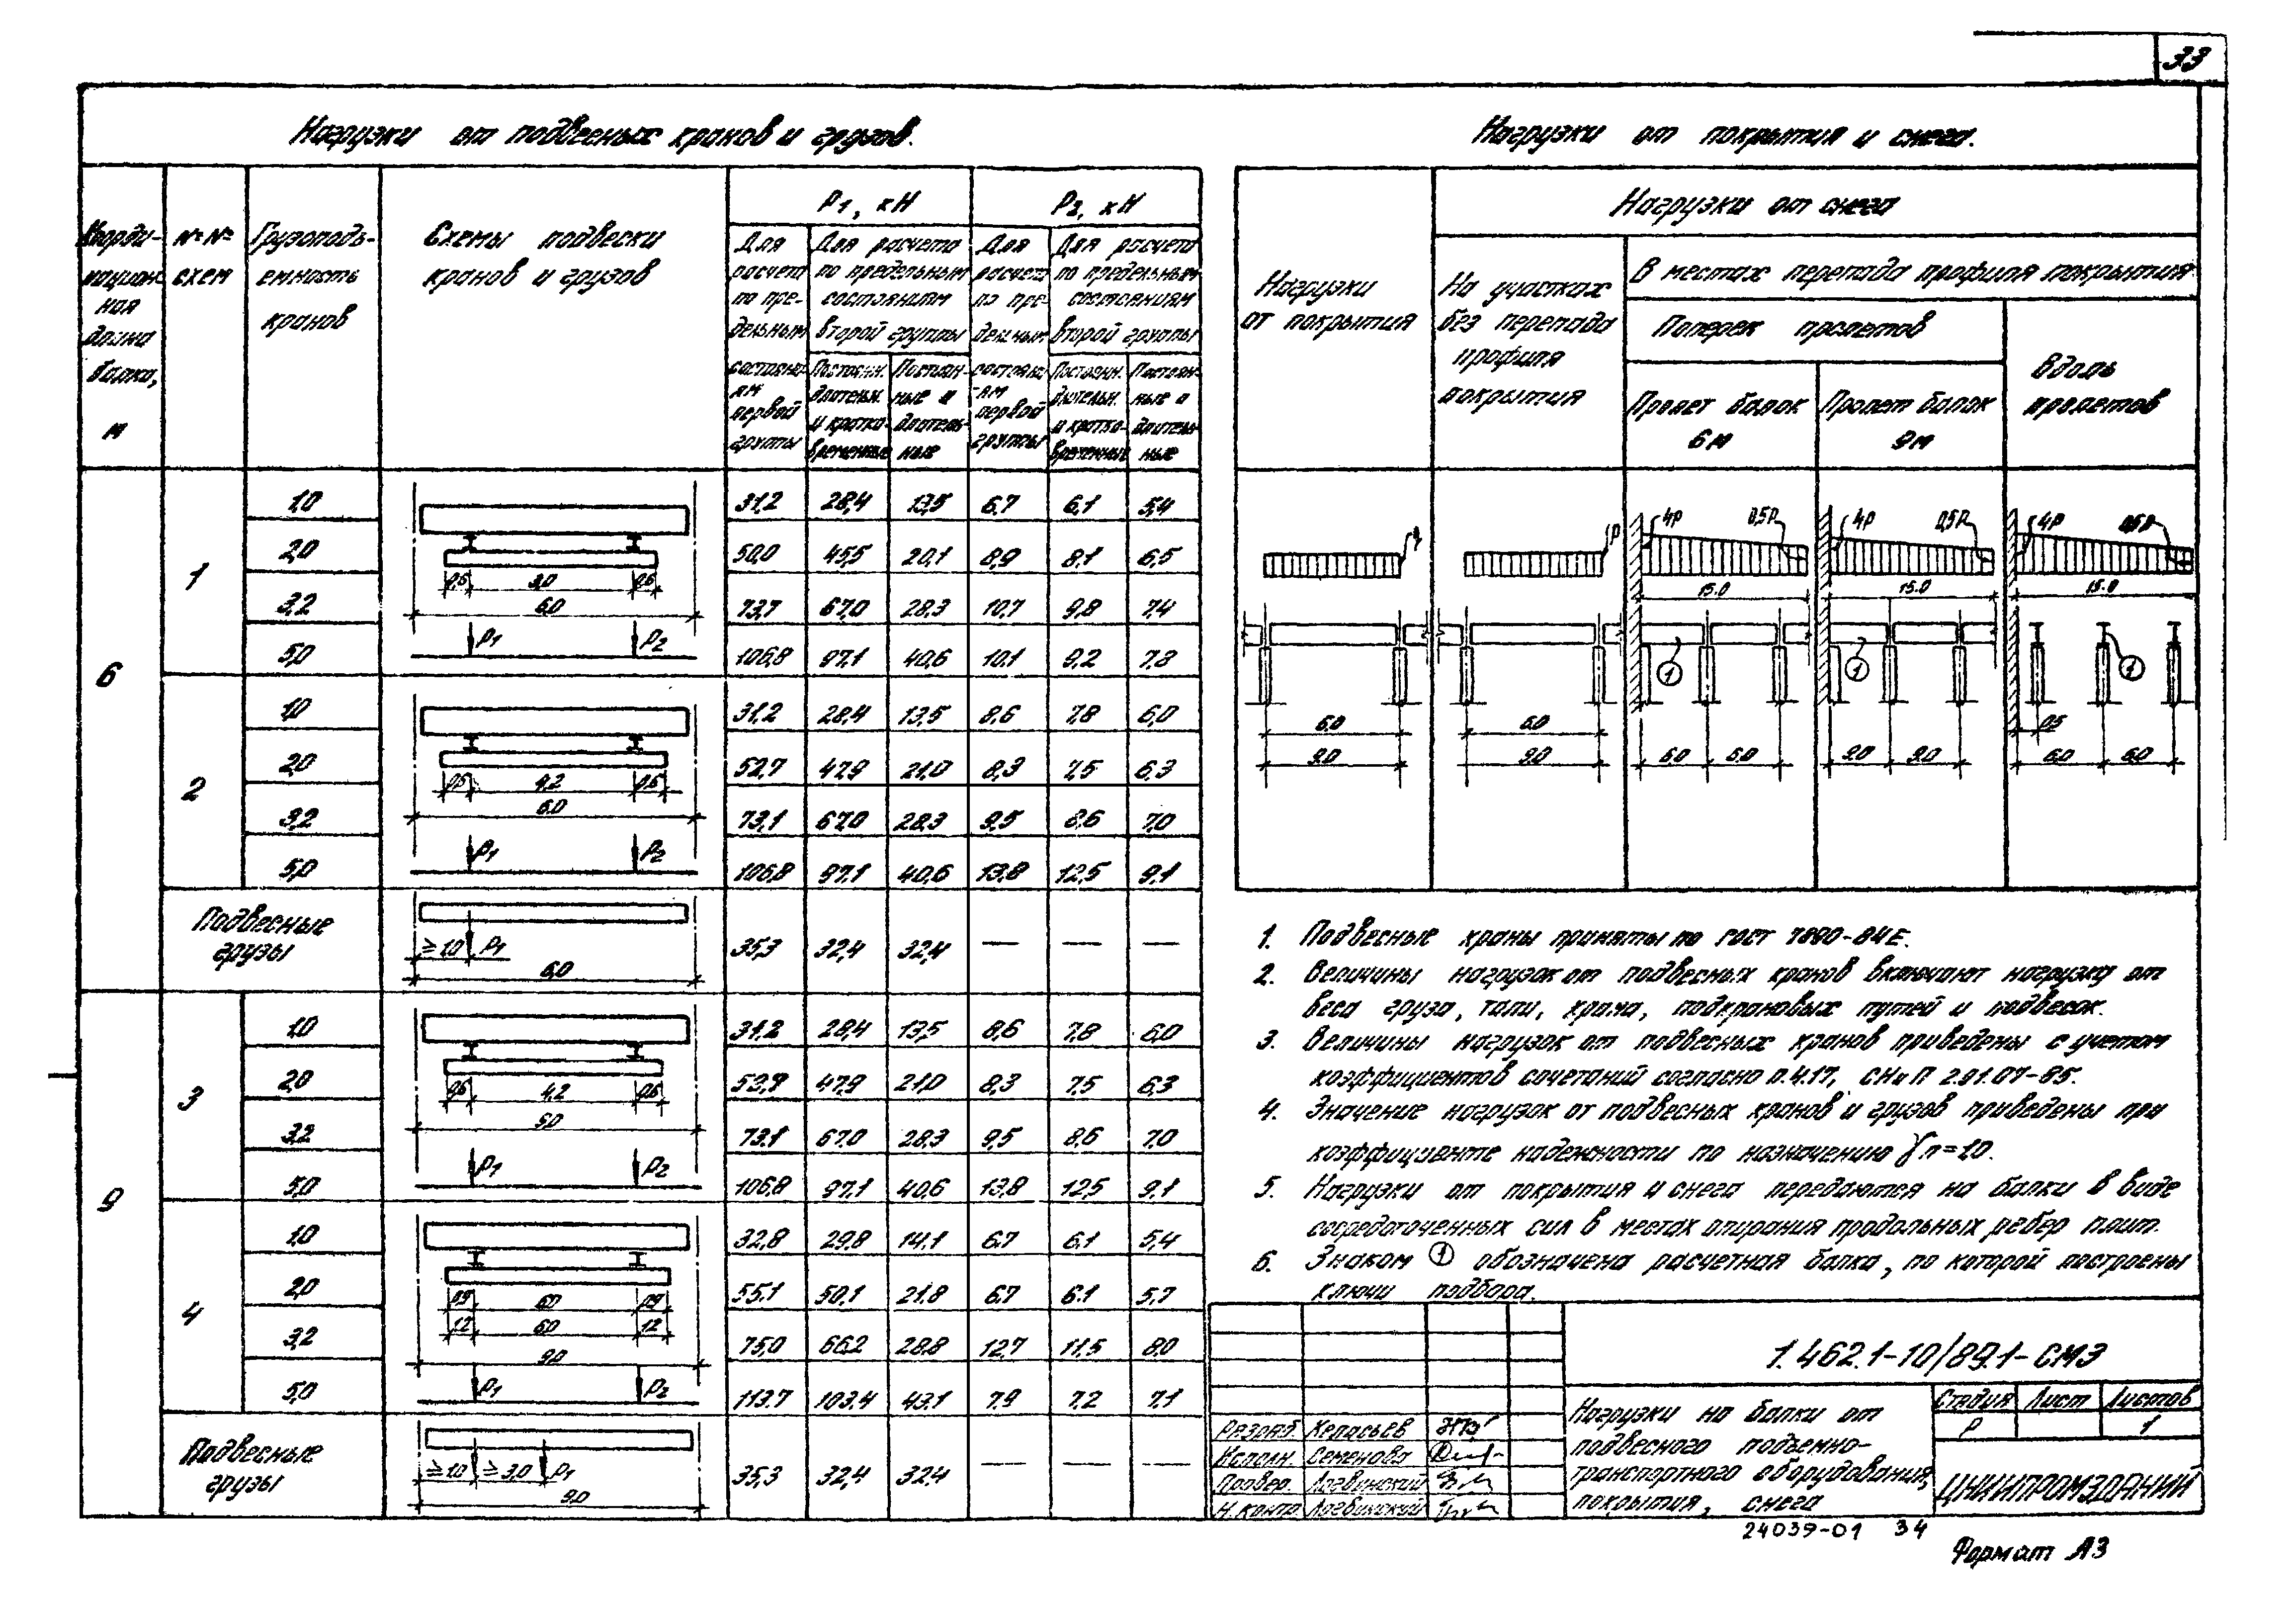 33
Нагрузки от подвесных кранов и грузов.
Нагрузки от покрытия и снега.
Коорди-
национ-
ная
длина
балки,
м
№№
схем
Грузоподъ-
емность
кранов
Схемы подвески
кранов и грузов
P1, кН
P2, кН
Для
расчета
по пре-
дельным
состояни-
ям
первой
группы
Для расчета
по предельным
состояниям
второй группы
Постоянн.
длительн.
и кратко-
временные
Постоян-
ные и
длитель-
ные
Для
расчета
по пре-
дельным
состояни-
ям
первой
группы
Для расчета
по предельным
состояниям
второй группы
Постоянн.
длительн.
и кратко-
временные
Постоян-
ные и
длитель-
ные
6
1
1,0 31,2 28,4 13,5 6.7 6,1 5,4
2,0 50,0 45,5 20,1 8,9 8.1 6,5
3,2 73,7 67,0 28,3 10,7 9,8 7,4
5,0 106,8 97,1 40,6 10.1 9,2 7,3
0,6 3,0 0,6
6,0
P1 P2
2
1,0 31,2 28,4 13,5 8,6 7,8 6,0
2,0 52,7 47,9 21,0 8,3 7,5 6,3
3,2 73,1 67,0 28,3 9,5 8,6 7,0
5,0 106,8 97,1 40,6 13,8 12,5 9,1
4,2 0,6
6,0
P1 P2
Подвесные
грузы
≥1.0 P1
6,0
35,3 32,4 32,4 — — —
9
3
1,0 31,2 28,4 13,5 8,6 7,8 6,0
2,0 52,7 47,9 21,0 8,3 7,5 6,3
3,2 73,1 67,0 28,3 9,5 8,6 7,0
5,0 106,8 97,1 40,6 13,8 12,5 9,1
0,6 4,2 0,6
P1 P2
4
1,0 32,8 29,8 14,1 6.7 6.1 5,4
2,0 55.1 50,1 21,8 6.7 6.1 5,7
3,2 75,0 66,2 28,8 12,7 11,5 8,0
5,0 113.7 103,4 43,1 7.9 7,2 7,1
1,2 6,0 1,2
9,0
P1 P2
Подвесные
грузы
≥1.0 ≥3,0 P1
9,0
35,3 32,4 32,4 — — —
Нагрузки
от покрытия
Нагрузки от снега
На участках
без перепада
профиля
покрытия
В местах перепада профиля покрытия
Поперек пролетов
Пролет балок
6м
Пролет балок
9м
Вдоль
пролетов
P 4P 0,5P 4P 0,5P 4P 0,5P
15.0 15.0 15.0
1 1 1
6,0 6,0 0,5
9,0 9,0 6,0 6,0 9,0 9,0 6,0 6,0
1. Подвесные краны приняты по ГОСТ 7890-84Е.
2. Величины нагрузок от подвесных кранов включают нагрузку от
веса груза, тали, крана, подкрановых путей и подвесок.
3. Величины нагрузок от подвесных кранов приведены с учетом
коэффициентов сочетаний согласно п.4.17, СНиП 2.01.07-85.
4. Значение нагрузок от подвесных кранов и грузов приведены при
коэффициенте надежности по назначению γn=1,0.
5. Нагрузки от покрытия и снега передаются на балки в виде
сосредоточенных сил в местах опирания продольных ребер плит.
6. Знаком 1 обозначена расчетная балка, по которой построены
ключи подбора.
1.462.1-10/89.1-СМ3
Нагрузки на балки от
подвесного подъемно-
транспортного оборудования,
покрытия, снега
Стадия Лист Листов
Р 1
ЦНИИПРОМЗДАНИЙ
Разраб.
Исполн. Семенова
Провер. Логвинский
Н.контр. Логвинский
24039-01 34
Формат А3